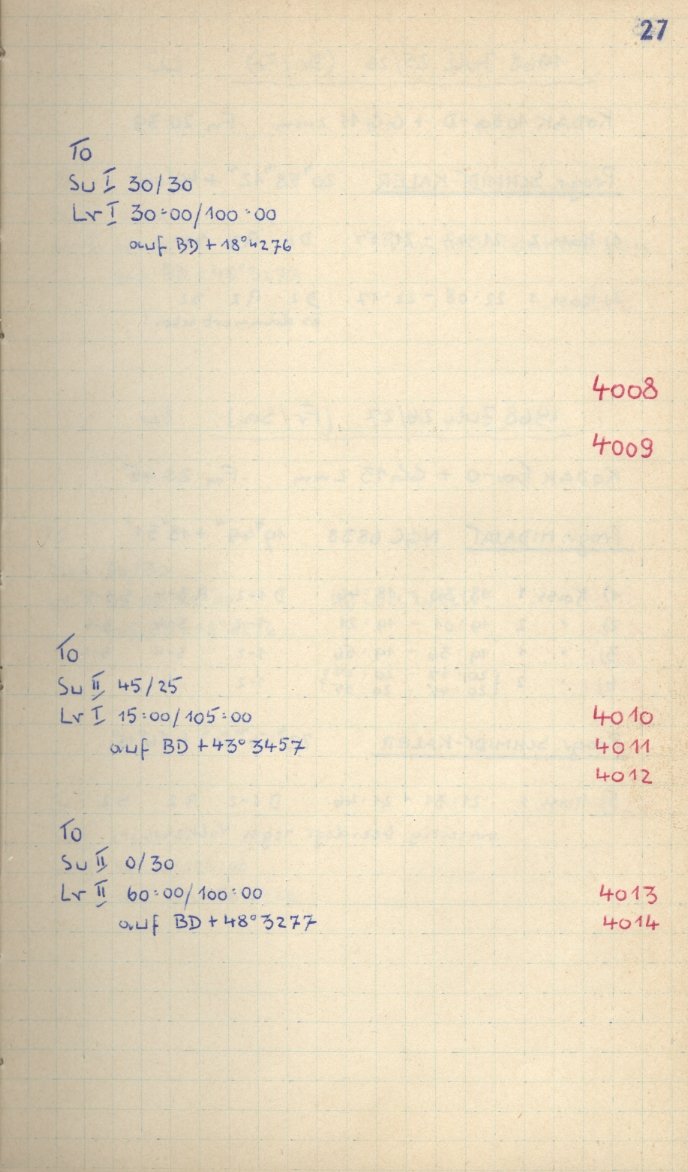 27
To
Su I 30/30
Lr I 30:00/100:00
auf BD + 18° 4276
4008
4009
To
Su II 45/25
Lr I 15:00/105:00
auf BD + 43° 3457
4010
4011
4012
To
Su II 0/30
Lr II 60:00/100:00
auf BD + 48° 3277
4013
4014